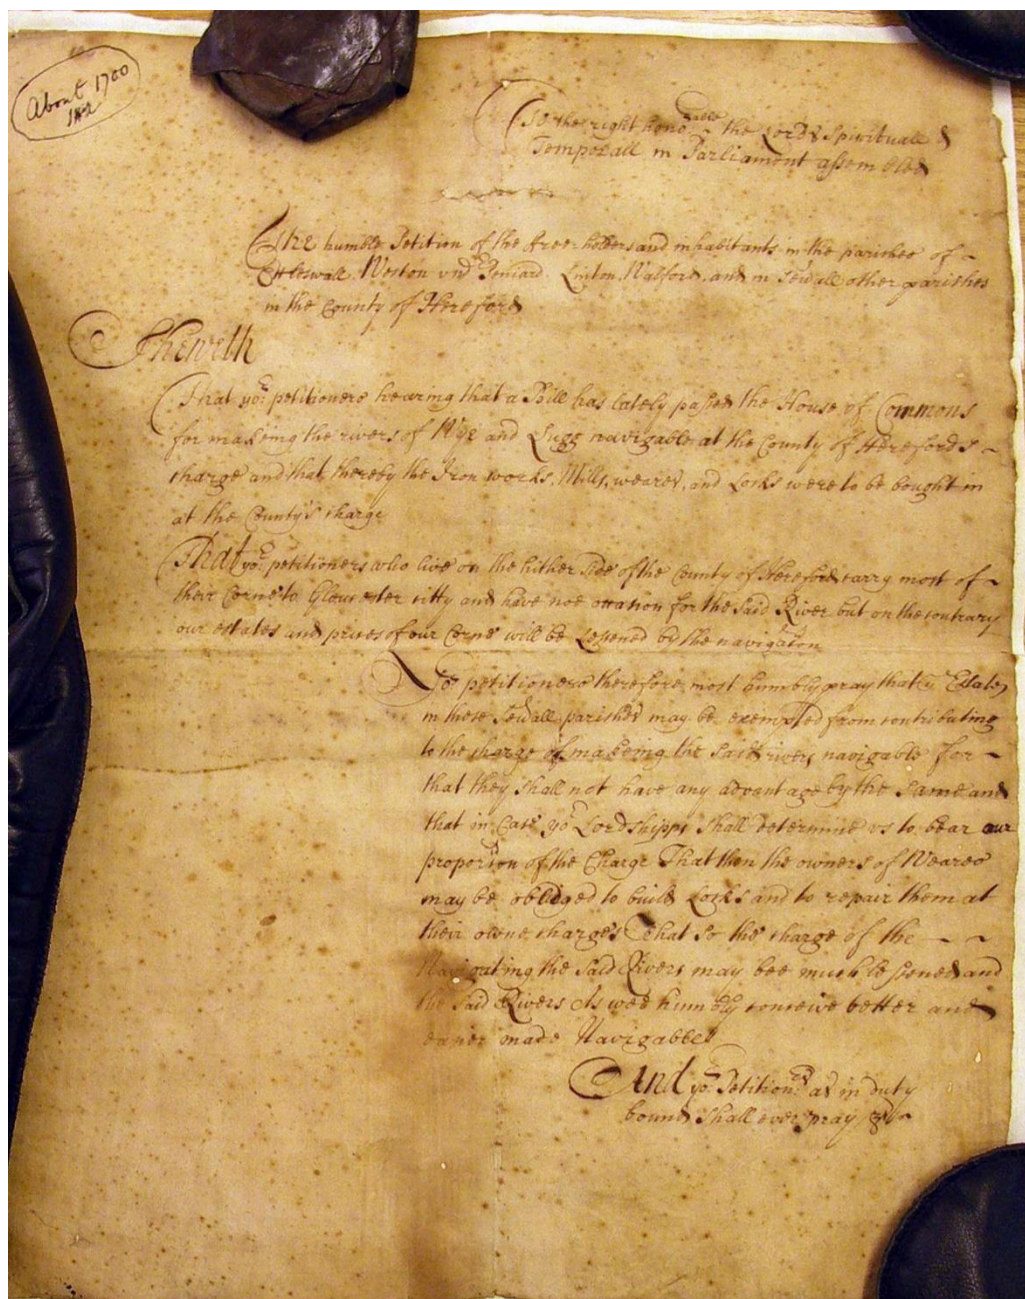 About 1700
To the right honoble the Lords Spirituall &
Temporall in Parliament assembled
The humble Petition of the free-holders and inhabitants in the parishes of
Weston vnd Peniard Linton, Walford, and in sevall other parishes
in the County of Hereford
Sheweth
That yor petitioners hearing that a Bill has lately passed the House of Commons
for makeing the rivers of Wye and Lugg navigable at the County of Herefords
charge and that thereby the Iron works, Mills, weares, and Locks were to be bought in
at the County's charge
That yor petitioners who live on the hither side of the County of Hereford carry most of
their Corne to Gloucester citty and have noe occation for the said River but on the contrary
our estates and prices of our Corne will be lessened by the navigation
Yor petitioners therefore most humbly pray that ye Estates
in these sevall parishes may be exempted from contributing
to the charge of makeing the said rivers navigable for
that they shall not have any advantage by the same and
that in Case yor Lordshipps shall determine vs to bear our
proportion of the Charge That then the owners of Weares
may be obliged to build Locks and to repair them at
their owne charges That so the charge of the
Navigating the said Rivers may bee much lessened and
the said Rivers As wee humbly conceive better and
easier made Navigable
And yor Petitionrs as in duty
bound shall ever pray &c